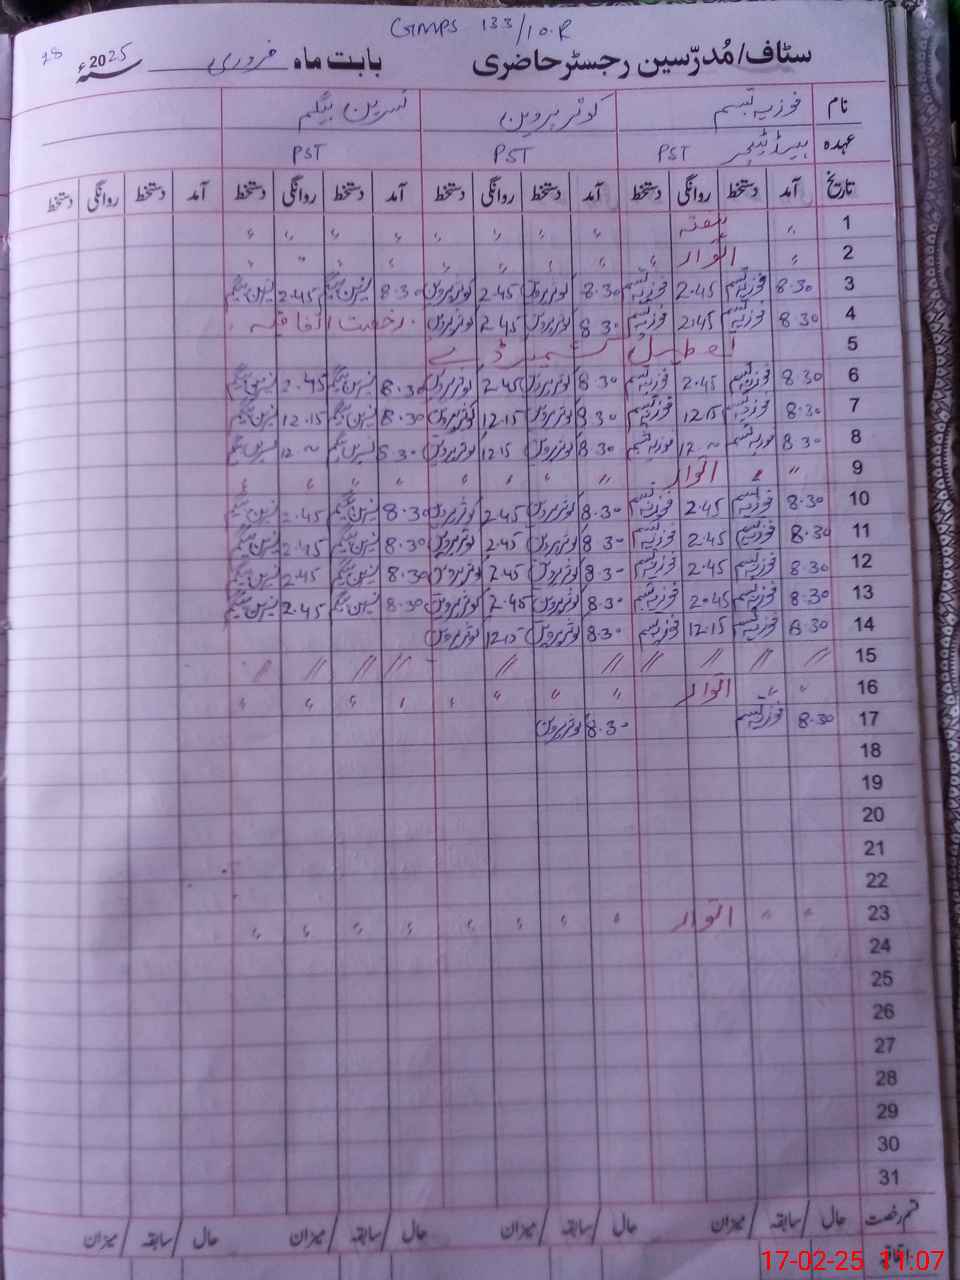 GMPS 133/10.R
سٹاف/مُدرّسین رجسٹر حاضری بابت ماہ فروری سنہ 2025ء
نام فوزیہ تبسم کوثر پروین نسرین بیگم
عہدہ ہیڈ ٹیچر PST PST PST
تاریخ آمد دستخط روانگی دستخط آمد دستخط روانگی دستخط آمد دستخط روانگی دستخط آمد دستخط روانگی دستخط
1 〃 ہفتہ 〃 〃 〃 〃 〃 〃 〃 〃
2 〃 اتوار 〃 〃 〃 〃 〃 〃 〃 〃 〃
3 8.30 فوزیہ تبسم 2.45 فوزیہ تبسم 8.30 کوثر پروین 2.45 کوثر پروین 8.30 نسرین بیگم 2.45 نسرین بیگم
4 8.30 فوزیہ تبسم 2.45 فوزیہ تبسم 8.30 کوثر پروین 2.45 کوثر پروین رخصت اتفاقیہ
5 تعطیل کشمیر ڈے
6 8.30 فوزیہ تبسم 2.45 فوزیہ تبسم 8.30 کوثر پروین 2.45 کوثر پروین 8.30 نسرین بیگم 2.45 نسرین بیگم
7 8.30 فوزیہ تبسم 12.15 فوزیہ تبسم 8.30 کوثر پروین 12.15 کوثر پروین 8.30 نسرین بیگم 12.15 نسرین بیگم
8 8.30 فوزیہ تبسم 12 فوزیہ تبسم 8.30 کوثر پروین 12.15 کوثر پروین 8.30 نسرین بیگم 12 نسرین بیگم
9 〃 〃 اتوار 〃 〃 〃 〃 〃 〃 〃 〃
10 8.30 فوزیہ تبسم 2.45 فوزیہ تبسم 8.30 کوثر پروین 2.45 کوثر پروین 8.30 نسرین بیگم 2.45 نسرین بیگم
11 8.30 فوزیہ تبسم 2.45 فوزیہ تبسم 8.30 کوثر پروین 2.45 کوثر پروین 8.30 نسرین بیگم 2.45 نسرین بیگم
12 8.30 فوزیہ تبسم 2.45 فوزیہ تبسم 8.30 کوثر پروین 2.45 کوثر پروین 8.30 نسرین بیگم 2.45 نسرین بیگم
13 8.30 فوزیہ تبسم 2.45 فوزیہ تبسم 8.30 کوثر پروین 2.45 کوثر پروین 8.30 نسرین بیگم 2.45 نسرین بیگم
14 8.30 فوزیہ تبسم 12.15 فوزیہ تبسم 8.30 کوثر پروین 12.15 کوثر پروین
15 // // // // // // // // // //
16 〃 〃 اتوار 〃 〃 〃 〃 〃 〃 〃 〃
17 8.30 فوزیہ تبسم 8.30 کوثر پروین
18
19
20
21
22
23 〃 〃 اتوار 〃 〃 〃 〃 〃 〃 〃 〃
24
25
26
27
28
29
30
31
قسم رخصت حال/سابقہ/میزان حال/سابقہ/میزان حال/سابقہ/میزان حال/سابقہ/میزان
17-02-25 11:07